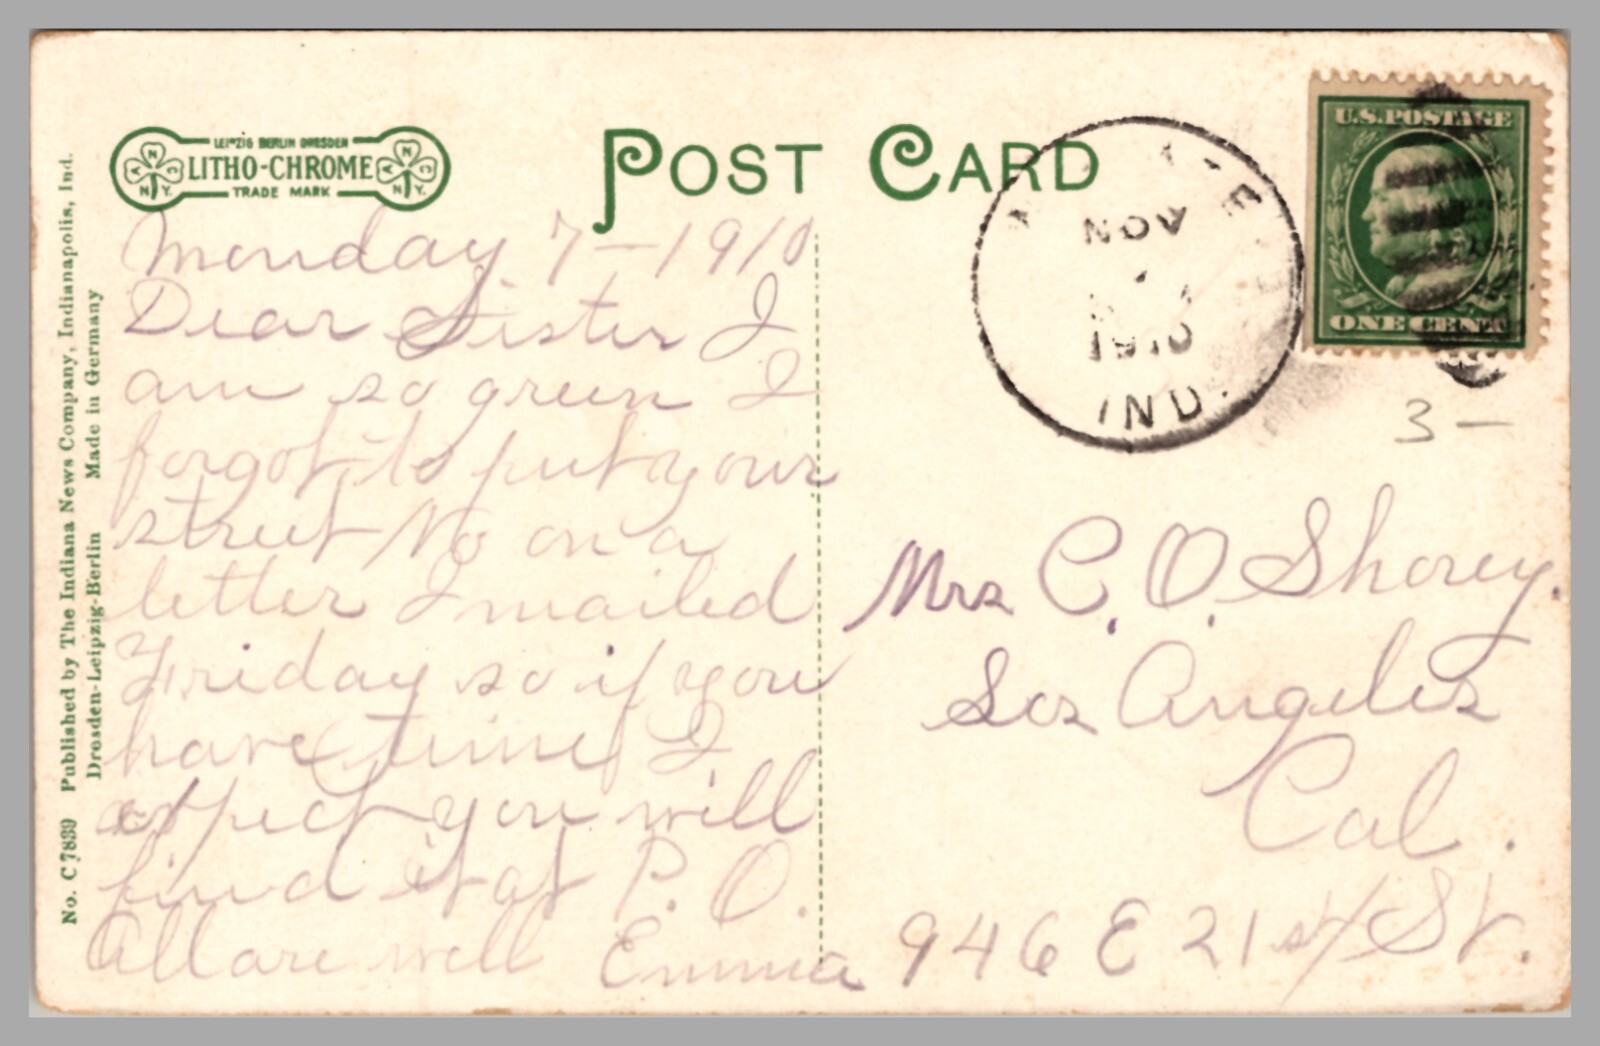 LEIPZIG BERLIN DRESDEN
LITHO-CHROME
TRADE MARK
A N C N.Y.
A N C N.Y.
POST CARD
U.S. POSTAGE
ONE CENT
NOV
1910
IND.
3 —
No. C 7839 Published by The Indiana News Company, Indianapolis, Ind.
Dresden-Leipzig-Berlin Made in Germany
Monday 7-1910
Dear Sister I
am so green I
forgot to put your
street No on a
letter I mailed
Friday so if you
have time I
expect you will
find it at P. O.
All are well Emma
Mrs C. O. Shorey.
Los Angeles
Cal.
946 E 21st St.